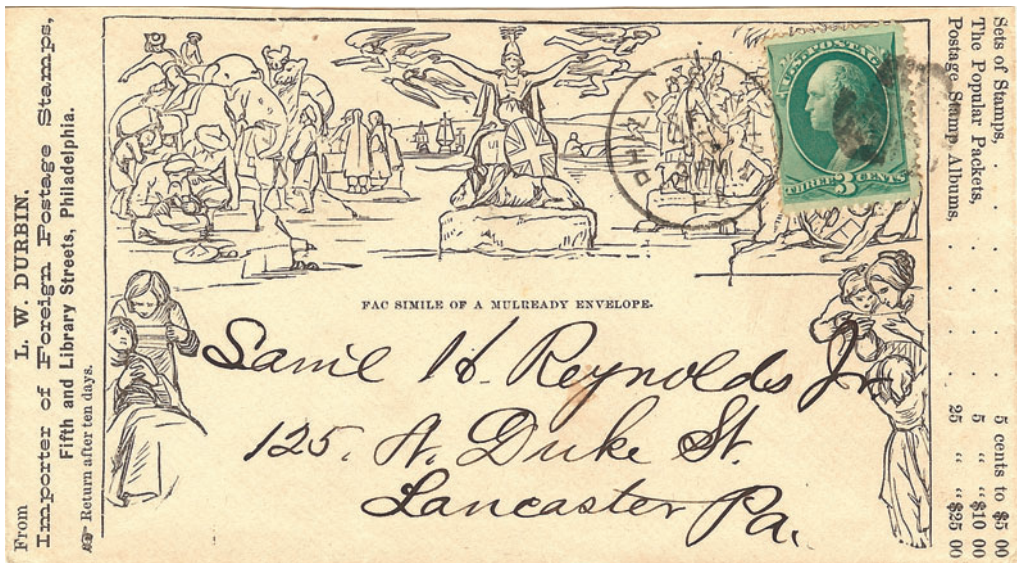 From
L. W. DURBIN.
Importer of Foreign Postage Stamps,
Fifth and Library Streets, Philadelphia.
Return after ten days.
U.S. POSTAGE
THREE 3 CENTS
PHILA
PM
FAC SIMILE OF A MULREADY ENVELOPE.
Saml H. Reynolds Jr.
125. N. Duke St.
Lancaster Pa.
Sets of Stamps, . . . . . 5 cents to $5 00
The Popular Packets, . . . . 5 " "$10 00
Postage Stamp Albums, . . . . 25 " "$25 00